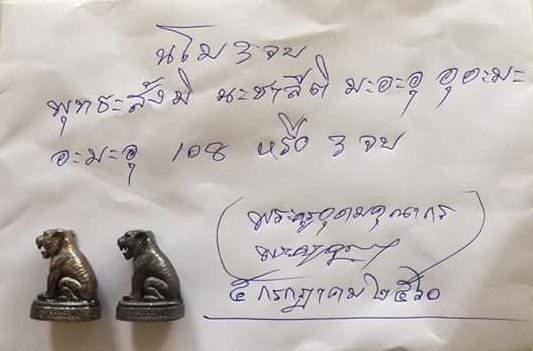 นโม 3 จบ
พุทธะสังมิ นะชาลีติ มะอะอุ อุอะมะ
อะมะอุ 108 หรือ 3 จบ
(พระครูอุดมคุณากร)
๕ กรกฎาคม ๒๕๖๐